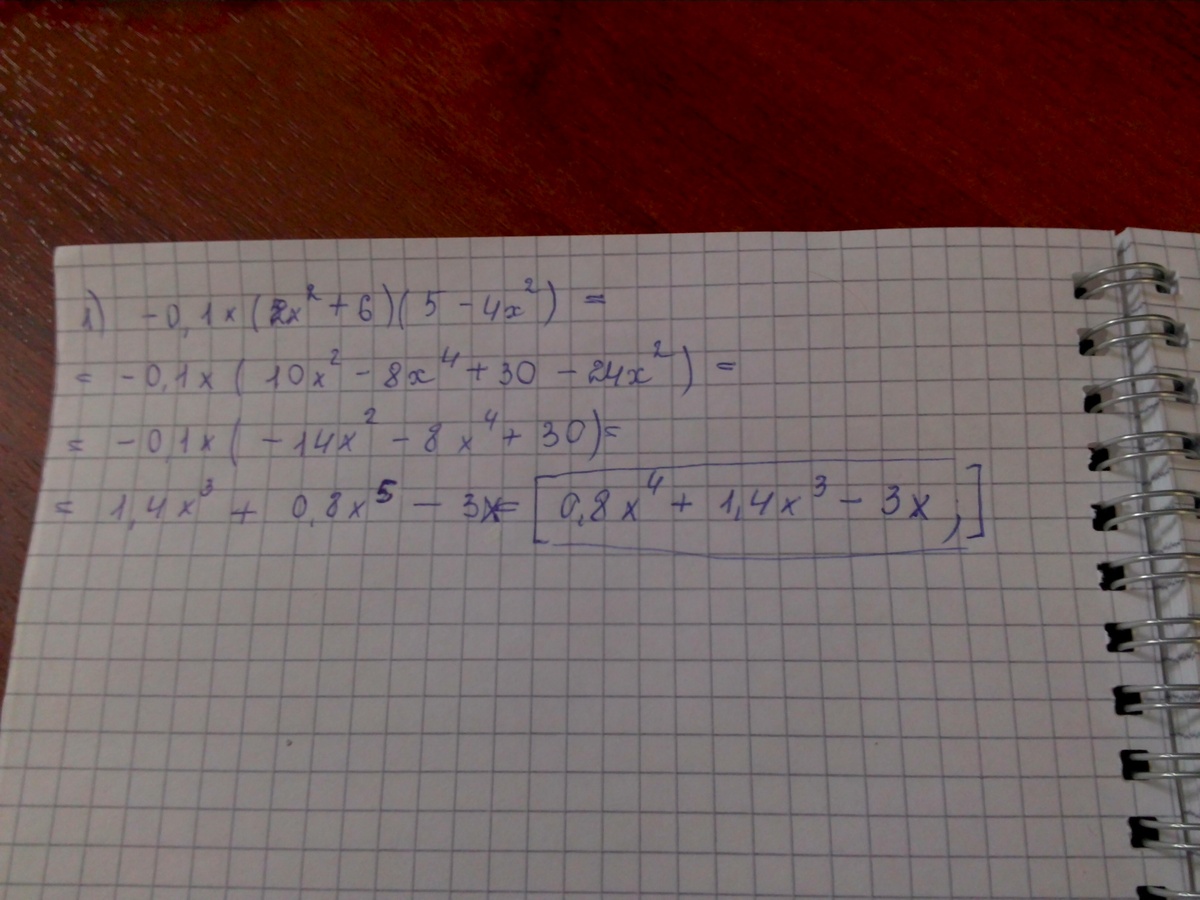 1) -0,1x(2x²+6)(5-4x²) =
= -0,1x(10x²-8x⁴+30-24x²) =
= -0,1x(-14x²-8x⁴+30)=
= 1,4x³ + 0,8x⁵ - 3x= [0,8x⁴ + 1,4x³ - 3x;]